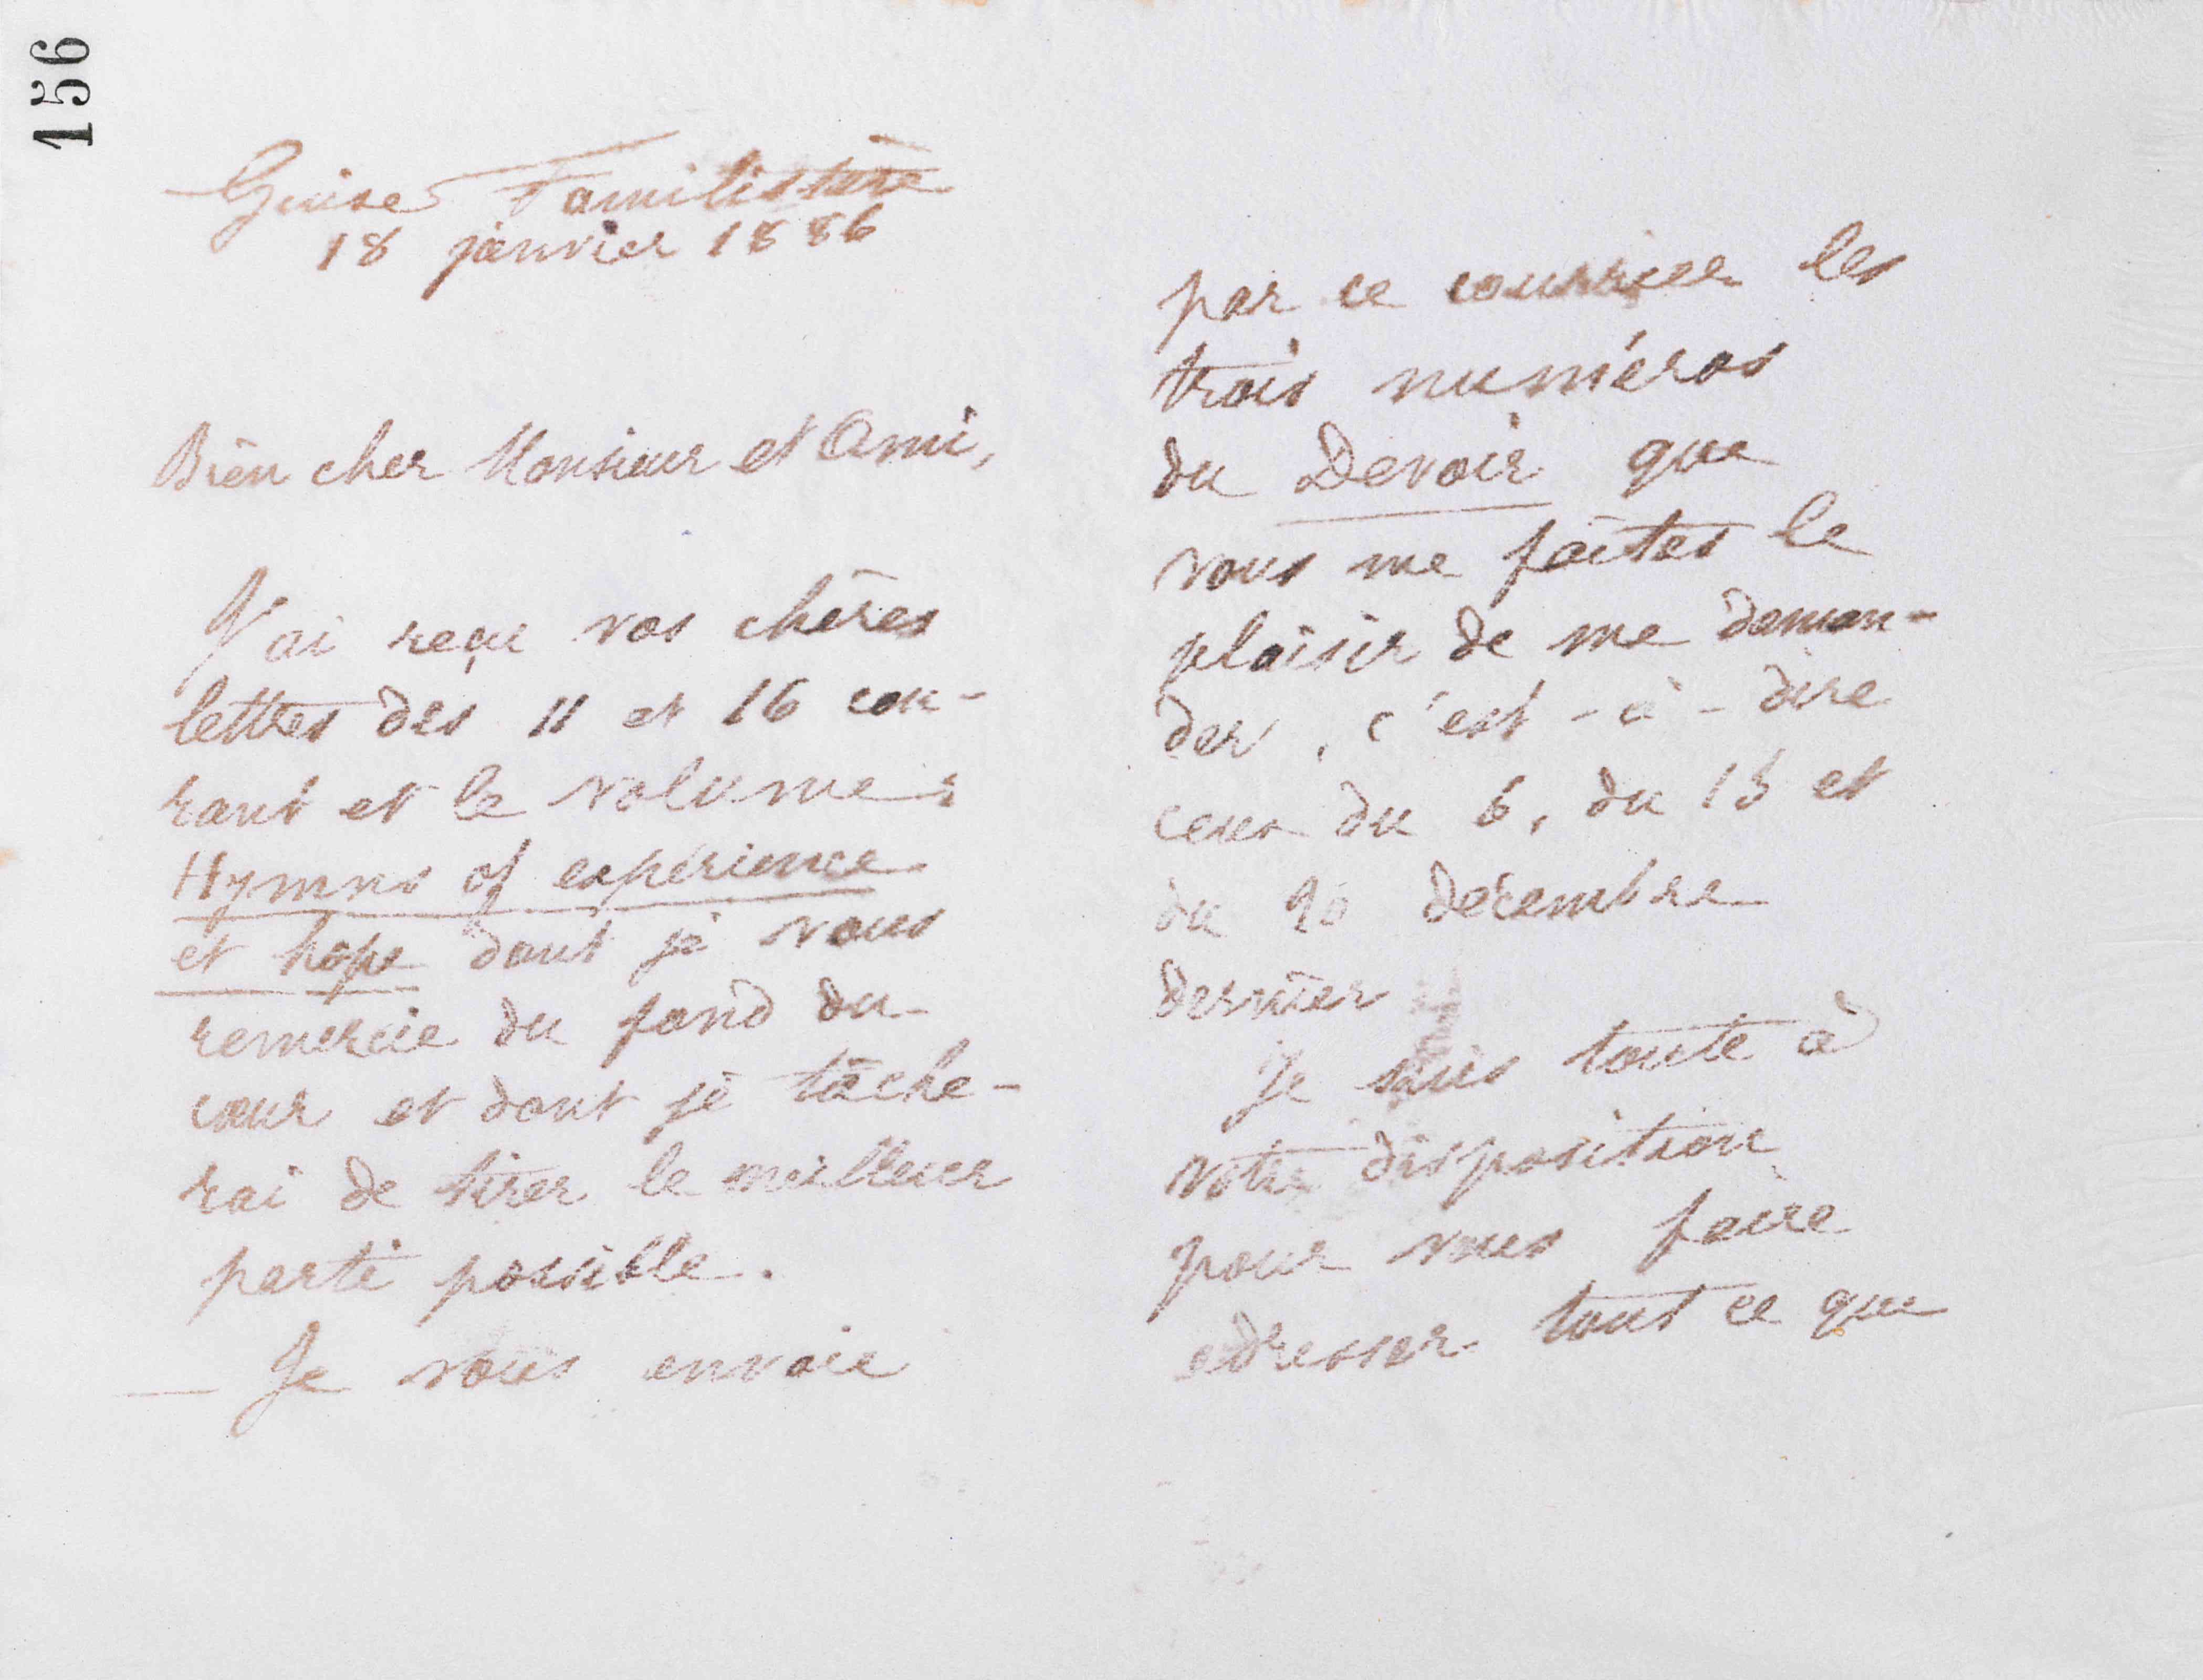 156
Guise Familistère
18 janvier 1886
Bien cher Monsieur et Ami,
J'ai reçu vos chères
lettres des 11 et 16 cou-
rant et le volume :
Hymns of expérience
et hope dont je vous
remercie du fond du
cœur et dont je tâche-
rai de tirer le meilleur
parti possible.
Je vous envoie
par ce courrier les
trois numéros
du Devoir que
vous me faites le
plaisir de me deman-
der, c'est-à-dire
ceux du 6, du 13 et
du 20 décembre
dernier
Je suis toute à
votre disposition
pour vous faire
adresser tout ce que